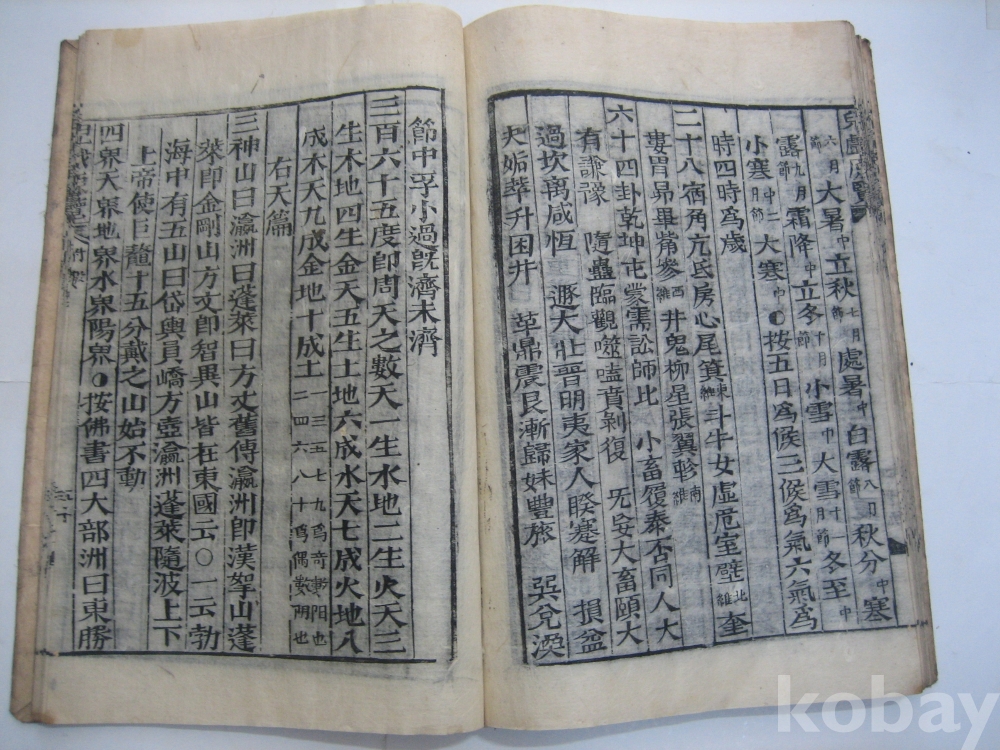 六月節大暑中立秋七月節處暑中白露八月節秋分中寒
露九月節霜降中立冬十月節小雪中大雪十月節冬至中
小寒十二月節大寒中●按五日爲候三候爲氣六氣爲
時四時爲歲
二十八宿角亢氐房心尾箕東維斗牛女虛危室壁北維奎
婁胃昴畢觜參西維井鬼柳星張翼軫南維
六十四卦乾坤屯蒙需訟師比 小畜履泰否同人大
有謙豫 隨蠱臨觀噬嗑賁剝復 旡妄大畜頤大
過坎离咸恆 遯大壯晉明夷家人睽蹇解 損益
夬姤萃升困井 革鼎震艮漸歸妹豐旅 巽兌渙
節中孚小過旣濟未濟
三百六十五度卽周天之數天一生水地二生火天三
生木地四生金天五生土地六成水天七成火地八
成木天九成金地十成土一三五七九爲奇數陽也二四六八十爲偶數陰也
右天篇
三神山曰瀛洲曰蓬萊曰方丈舊傳瀛洲卽漢拏山蓬
萊卽金剛山方丈卽智異山皆在東國云○一云勃
海中有五山曰岱輿員嶠方壺瀛洲蓬萊隨波上下
上帝使巨鼇十五分戴之山始不動
四界天界地界水界陽界●按佛書四大部洲曰東勝
kobay